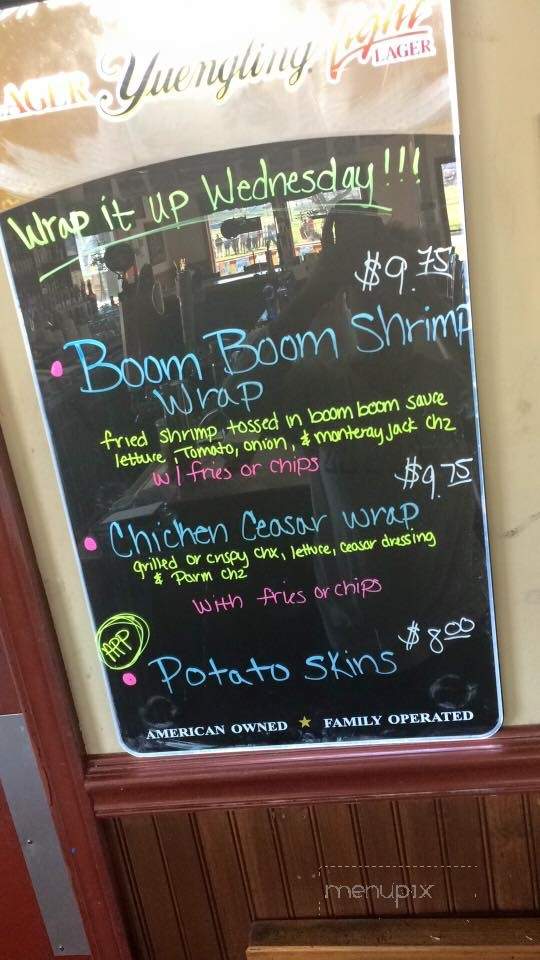 LAGER Yuengling Light LAGER
Wrap it up Wednesday!!!
$9.75
• Boom Boom Shrimp
Wrap
fried shrimp tossed in boom boom sauce
lettuce, Tomato, onion, & monteray jack chz
w/ fries or chips
$9.75
• Chicken Ceasar wrap
grilled or crispy chx, lettuce, ceasar dressing
& Parm chz
with fries or chips
APP
$8.00
• Potato skins
AMERICAN OWNED ★ FAMILY OPERATED
menupix